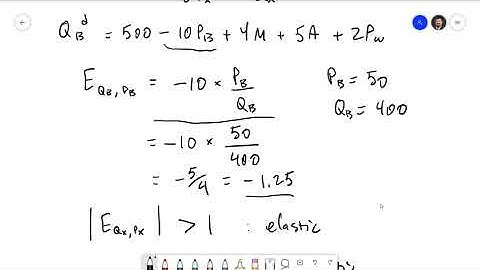 Q_B^d = 500 - 10P_B + 4M + 5A + 2P_w
E_{Q_B, P_B} = -10 × P_B/Q_B
P_B = 50
Q_B = 400
= -10 × 50/400
= -5/4 = -1.25
|E_{Q_X, P_X}| > 1 : elastic